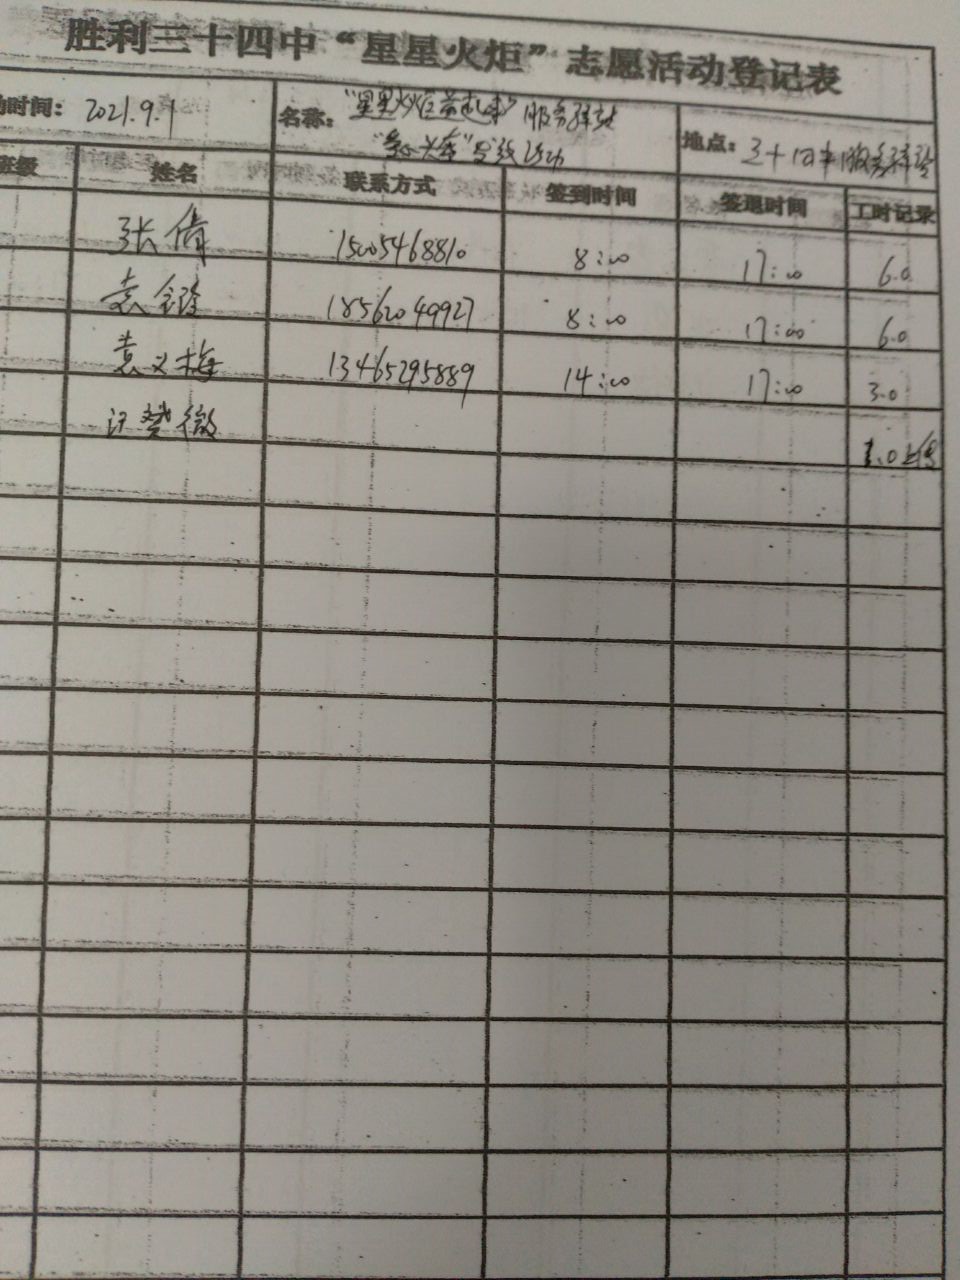 胜利三十四中“星星火炬”志愿活动登记表
动时间: 2021.9.1 名称: “星星火炬 服务驿站 地点: 三十四中服务驿站
活动
班级 姓名 联系方式 签到时间 签退时间 工时记录
张倩 15005468810 8:00 17:00 6.0
袁 18562049927 8:00 17:00 6.0
袁义梅 13465295889 14:00 17:00 3.0
微 1.0上传